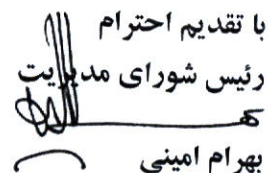 با تقدیم احترام
رئیس شورای مدیریت
بهرام امینی